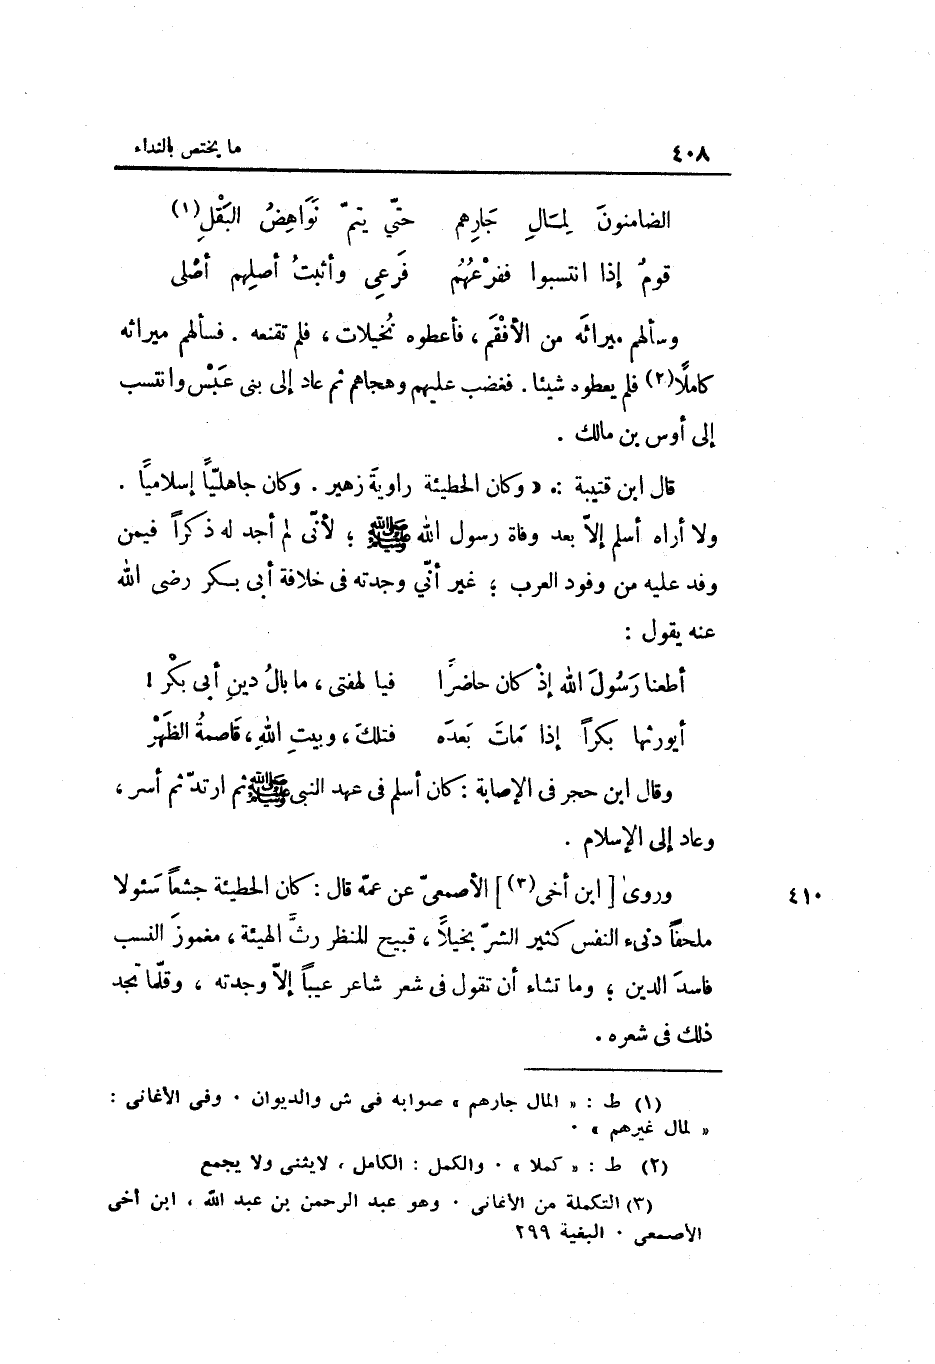 ٤٠٨ ما يختص بالنداء
الضامنونَ لِمَالِ جَارِهِم حتّي يتمّ نَوَاهِضُ البَقْلِ(١)
قومٌ إذا انتسبوا ففرْعُهُم فَرَعِى وأثبتُ أصلِهم أصْلى
وسألهم ميراثَه من الأفْقَم ، فأعطوه نُخيلات ، فلم تقنعه . فسألهم ميراثه
كاملًا(٢) فلم يعطوه شيئا . فغضب عليهم وهجاهم ثم عاد إلى بنى عَبْس وانتسب
إلى أوس بن مالك .
قال ابن قتيبة : « وكان الحطيئة راويةَ زهير . وكان جاهليًّا إسلاميًّا .
ولا أراه أسلم إلاّ بعد وفاة رسول الله ﷺ ؛ لأنّى لم أجد له ذكراً فيمن
وفد عليه من وفود العرب ؛ غير أنّي وجدته فى خلافة أبى بكر رضى الله
عنه يقول :
أطعنا رَسُولَ الله إذْ كان حاضرًا فيا لهفتى ، ما بالُ دينِ أبى بكْر !
أيورثها بكراً إذا مَاتَ بَعدَه فتلكَ ، وبيتِ اللهِ ، قَاصمةُ الظَهْرِ
وقال ابن حجر فى الإصابة : كان أسلم فى عهد النبى ﷺ ثم ارتدّ ثم أسر ،
وعاد إلى الإسلام .
وروىٰ [ ابن أخى(٣) ] الأصمعىّ عن عمّه قال : كان الحطيئة جشعاً سَئولا ٤١٠
ملحفاً دنىء النفس كثير الشرّ بخيلًا ، قبيح المنظر رثَّ الهيئة ، مغموزَ النسب
فاسدَ الدين ؛ وما تشاء أن تقول فى شعر شاعر عيباً إلاّ وجدته ، وقلّما تجد
ذلك فى شعره .
(١) ط : « المال جارهم » صوابه فى ش والديوان ٠ وفى الأغانى :
« لمال غيرهم » ٠
(٢) ط : « كملا » ٠ والكمل : الكامل ، لايثنى ولا يجمع
(٣) التكملة من الأغانى ٠ وهو عبد الرحمن بن عبد الله ، ابن أخى
الأصمعى ٠ البغية ٢٩٩